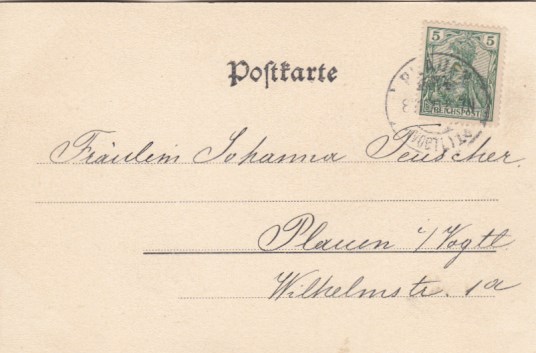 Postkarte
5 5
REICHSPOST
PLAUEN
(VOGTL)
Fräulein Johanna Teuscher.
Plauen i/Vogtl
Wilhelmstr. 1a